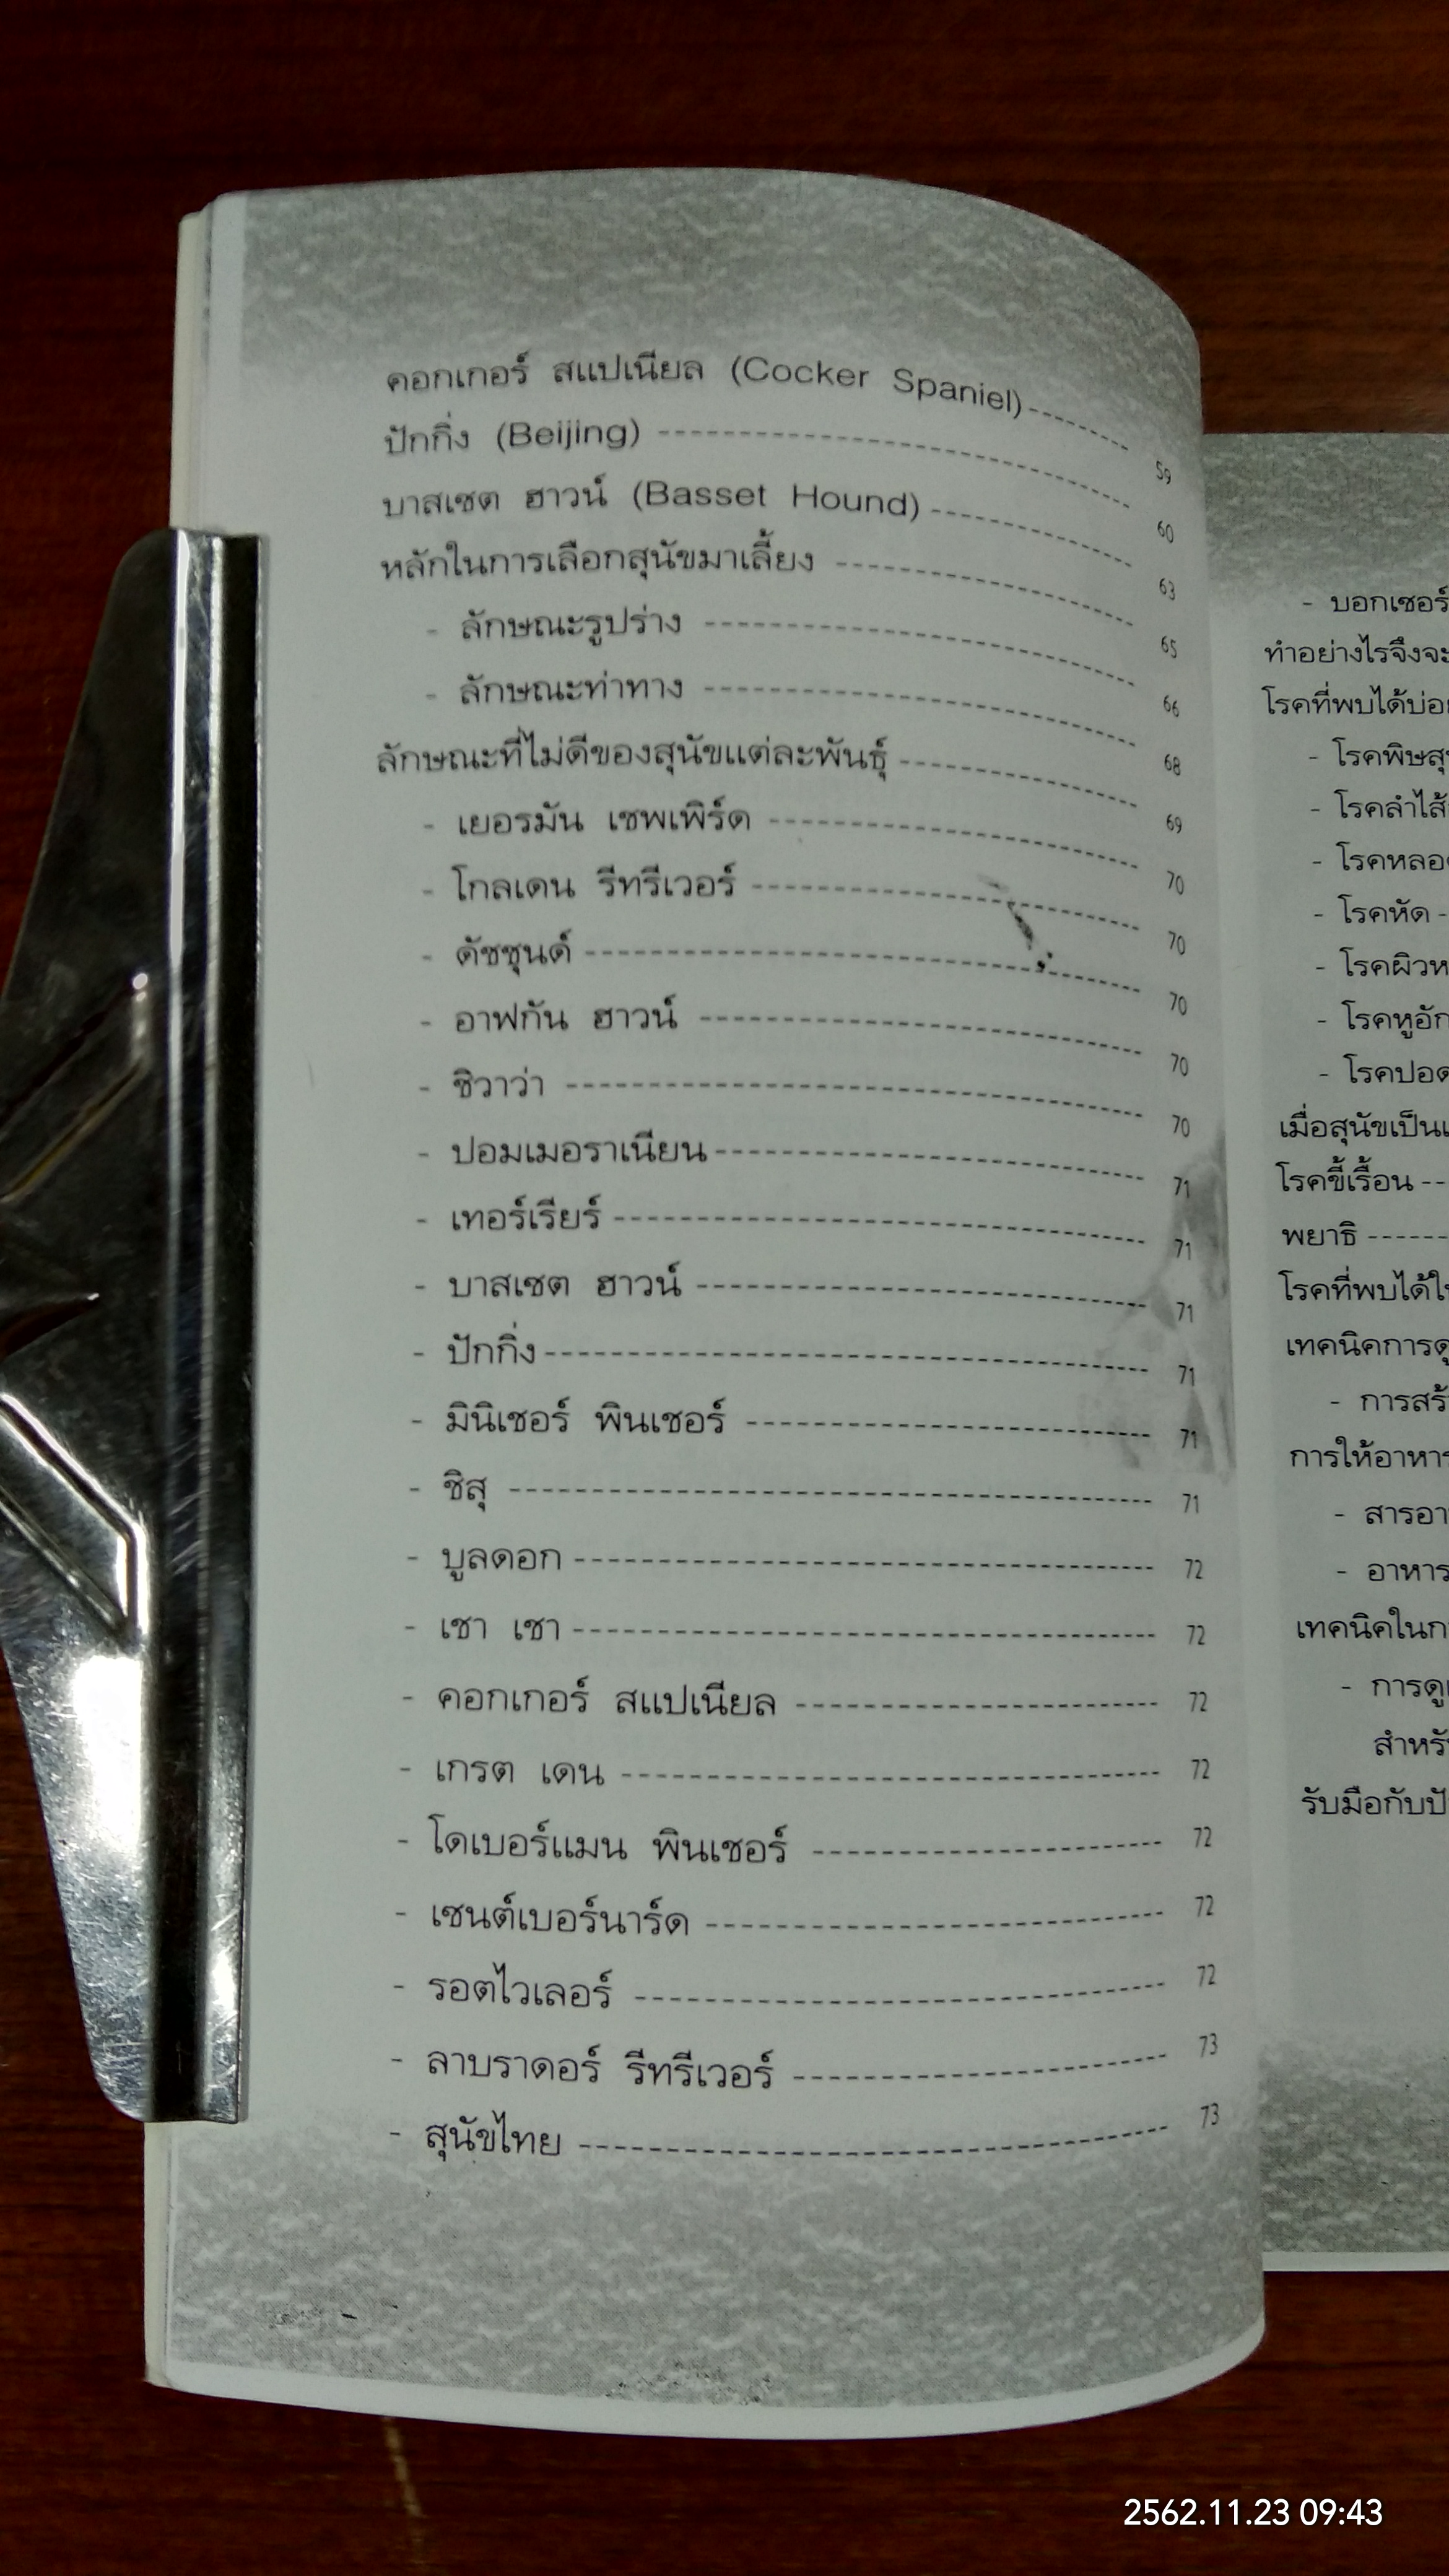 คอกเกอร์ สแปเนียล (Cocker Spaniel)---------- 59
ปักกิ่ง (Beijing) ------------------------------ 60
บาสเซต ฮาวน์ (Basset Hound)--------------- 63
หลักในการเลือกสุนัขมาเลี้ยง -------------------- 65
- ลักษณะรูปร่าง ---------------------------- 66
- ลักษณะท่าทาง ---------------------------- 68
ลักษณะที่ไม่ดีของสุนัขแต่ละพันธุ์--------------- 69
- เยอรมัน เชพเพิร์ด ------------------------ 70
- โกลเดน รีทรีเวอร์ ------------------------ 70
- ดัชชุนด์ --------------------------------- 70
- อาฟกัน ฮาวน์ ---------------------------- 70
- ชิวาว่า ---------------------------------- 70
- ปอมเมอราเนียน--------------------------- 71
- เทอร์เรียร์ ------------------------------- 71
- บาสเซต ฮาวน์ ---------------------------- 71
- ปักกิ่ง----------------------------------- 71
- มินิเชอร์ พินเชอร์ ------------------------ 71
- ชิสุ ------------------------------------- 71
- บูลดอก ---------------------------------- 72
- เชา เชา ---------------------------------- 72
- คอกเกอร์ สแปเนียล ----------------------- 72
- เกรต เดน -------------------------------- 72
- โดเบอร์แมน พินเชอร์ --------------------- 72
- เซนต์เบอร์นาร์ด -------------------------- 72
- รอตไวเลอร์ ------------------------------ 72
- ลาบราดอร์ รีทรีเวอร์ ---------------------- 73
- สุนัขไทย -------------------------------- 73
- บอกเซอร์
ทำอย่างไรจึงจะ
โรคที่พบได้บ่อย
- โรคพิษสุ
- โรคลำไส้
- โรคหลอด
- โรคหัด -
- โรคผิวห
- โรคหูอัก
- โรคปอด
เมื่อสุนัขเป็นเ
โรคขี้เรื้อน --
พยาธิ ------
โรคที่พบได้ใ
เทคนิคการดู
- การสร้
การให้อาหาร
- สารอา
- อาหาร
เทคนิคในกา
- การดูแ
สำหรั
รับมือกับปั
2562.11.23 09:43